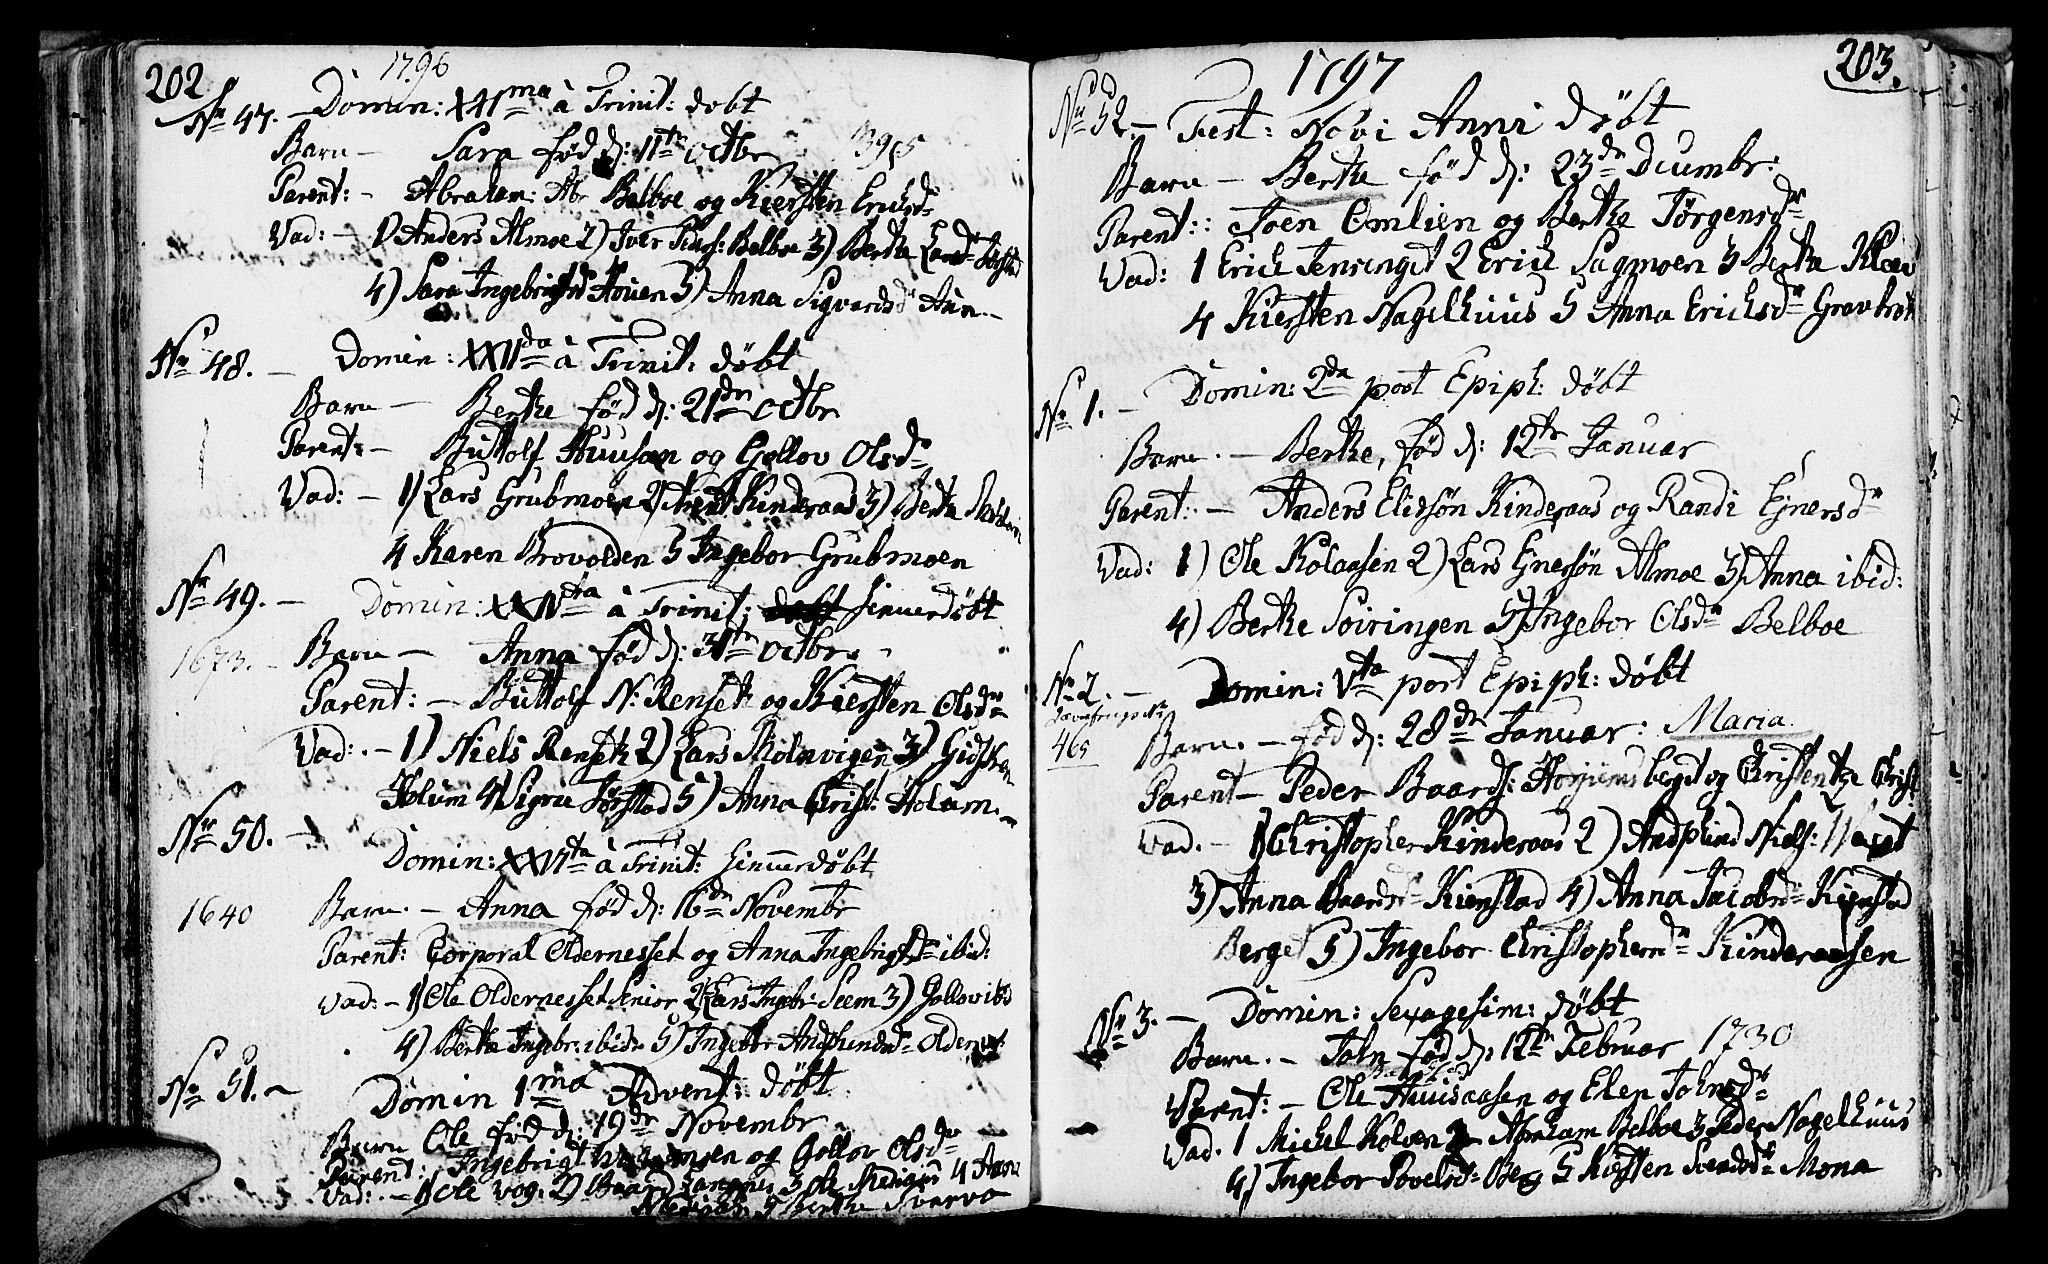 202
1796
Nr 47. - Domin: XXIma à Trinit: dobt
Barn - Sara fød d: 11te octbr 1395
Parent: - Abraham: Abr Belboe og Kiersten Ericksdr
Vad: - 1) Anders Almoe 2) Iver Belboe 3) Berthe Larsdr
4) Sara Ingebrigtsd Houen 5) Anna Sigvardsdr Aun -
Nr 48. - Domin: XXIIda à Trinit: døbt
Barn - Berthe fød d: 21de octbr
Parent: - Buttolf Huusan og Gollov Olsdr
Vad: - 1) Lars Grubmoen 2) Arent Kinderaas 3) Berthe
4 Karen Brovolden 5 Ingebor Grubmoen
Nr 49. - Domin: XXIVta à Trinit: hiemmedøbt
1673. - Barn - Anna fød d: 31te octbr. -
Parent: - Buttolf N: Rensek og Kiersten Olsdr
Vad: - 1) Niels Rensek 2) Lars Holmvigen 3) Gidsken
Holum 4) Sigrie Førstad 5) Anna Christ: Holum. -
Nr 50. - Domin: XXVIta à Trinit: hiemmedøbt
1640 Barn. - Anna fød d: 16de Novembr
Parent: Corporal Oldernesset og Anna Ingebrigtsdr ibid:
Vad: - 1) Ole Oldernesset Senior 2) Lars Ingebr: Seem 3) Gollov ibid
4) Bertha Ingebr: ibid: 5) Ingebor Andfindsdr Oldernes:
Nr 51. - Domin 1ma Advent: døbt
Barn Ole fød d: 19de Novembr
Parent: Ingebrigt og Gollov Olsdr
Vad: - 1) Ole Vog: 2) Baard 3 Ole Mediaas 4 Anna
Mediaas 5 Berthe Svarva
203.
1797
Nr 52. - Fest: Novi Anni døbt
Barn - Berthe fød d: 23de Decembr:
Parent:: Joen Omlien og Berthe Jørgensdr
Vad: 1 Erick 2 Erick Sagmoen 3 Bertha Klæv
4 Kiersten Nagelhuus 5 Anna Ericksdr Gravbrot
Nr 1. - Domin: 2da post Epiph: døbt
Barn. - Berthe, fød d: 12te Januar
Parent: - Anders Elissøn Kinderaas og Randi Ejnersdr
Vad: 1) Ole Kolaasen 2) Lars Ejnersøn Almoe 3) Anna ibid:
4) Berthe Soiringen 5) Ingebor Olsdr Belboe
Nr 2. - Domin: Vta post Epiph: døbt
465
Barn. - fød d: 28de Januar: Maria
Parent - Peder Baards: Horjemsberget og Christentze Christ:
Vad. - 1) Christopher Kinderaas 2) Andfind Niels:
3) Anna Baardsdr Kienstad 4) Anna Jacobsdr Kienstad
Berget 5) Ingebor Christophersdr Kinderaasen
Nr 3. - Domin: Sexagesim: døbt
Barn. - John fød d: 12te Februar 1730
Parent: - Ole Huusaasen og Elen Johnsdr
Vad. 1 Michel Kolven 2 Abraham Belboe 3 Peder Nagelhuus
4) Ingebor Povelsdr Berg 5 Kirsten Svendsdr Mona